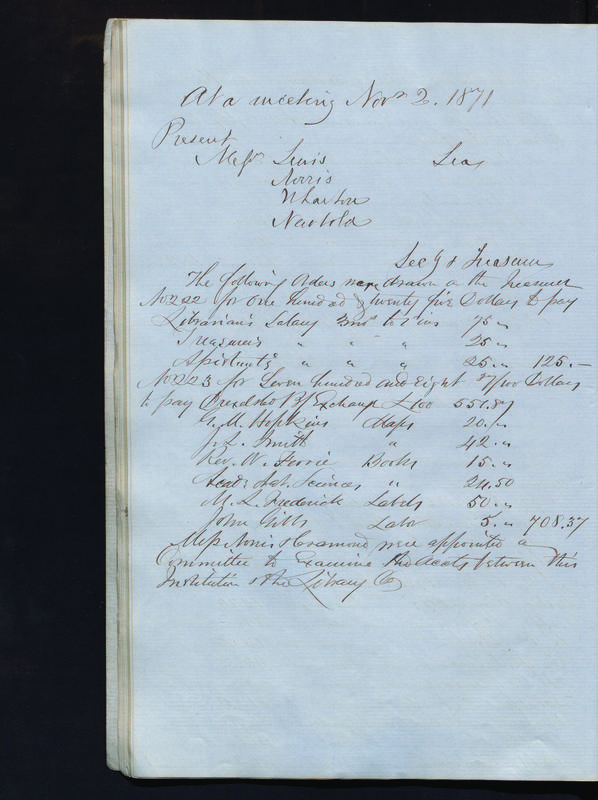 At a meeting Nov 2. 1871
Present
Messrs Lewis Lea
Norris
Wharton
Newbold
Secy & Treasurer
The following Orders were drawn on the Treasurer
No 222 for One hundred & twenty five Dollars to pay
Librarian's Salary 3 mos to 1 ins 75 "
Treasurers " " " 25 "
Assistants " " " 25 " 125.—
No 223 for Seven hundred and eight 37/100 Dollars
to pay Drexel & Co B/Exchange £100 551.87
G. M. Hopkins Maps 20 "
J. L. Smith " 42 "
Rev. W. Books 15 "
Acad. Nat. Sciences " 24.50
M. L. Frederick Labels 50 "
John Gibbs Labor 5 " 708.37
Messrs Norris & were appointed a
Committee to Examine the Accts between this
Institution & the Library Co